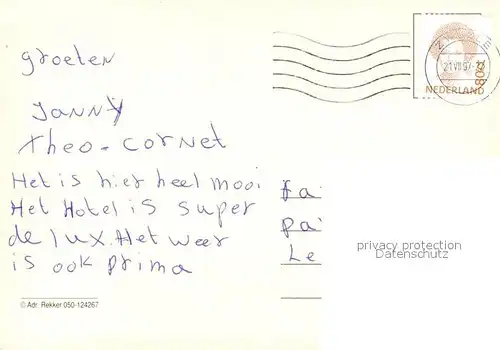 groeten
Janny
Theo - Cornet
Het is hier heel mooi
Het Hotel is super
de lux. Het weer
is ook prima
© Adr. Rekker 050-124267
21 VII 97
80c
NEDERLAND
fa
pa
Le
privacy protection
Datenschutz